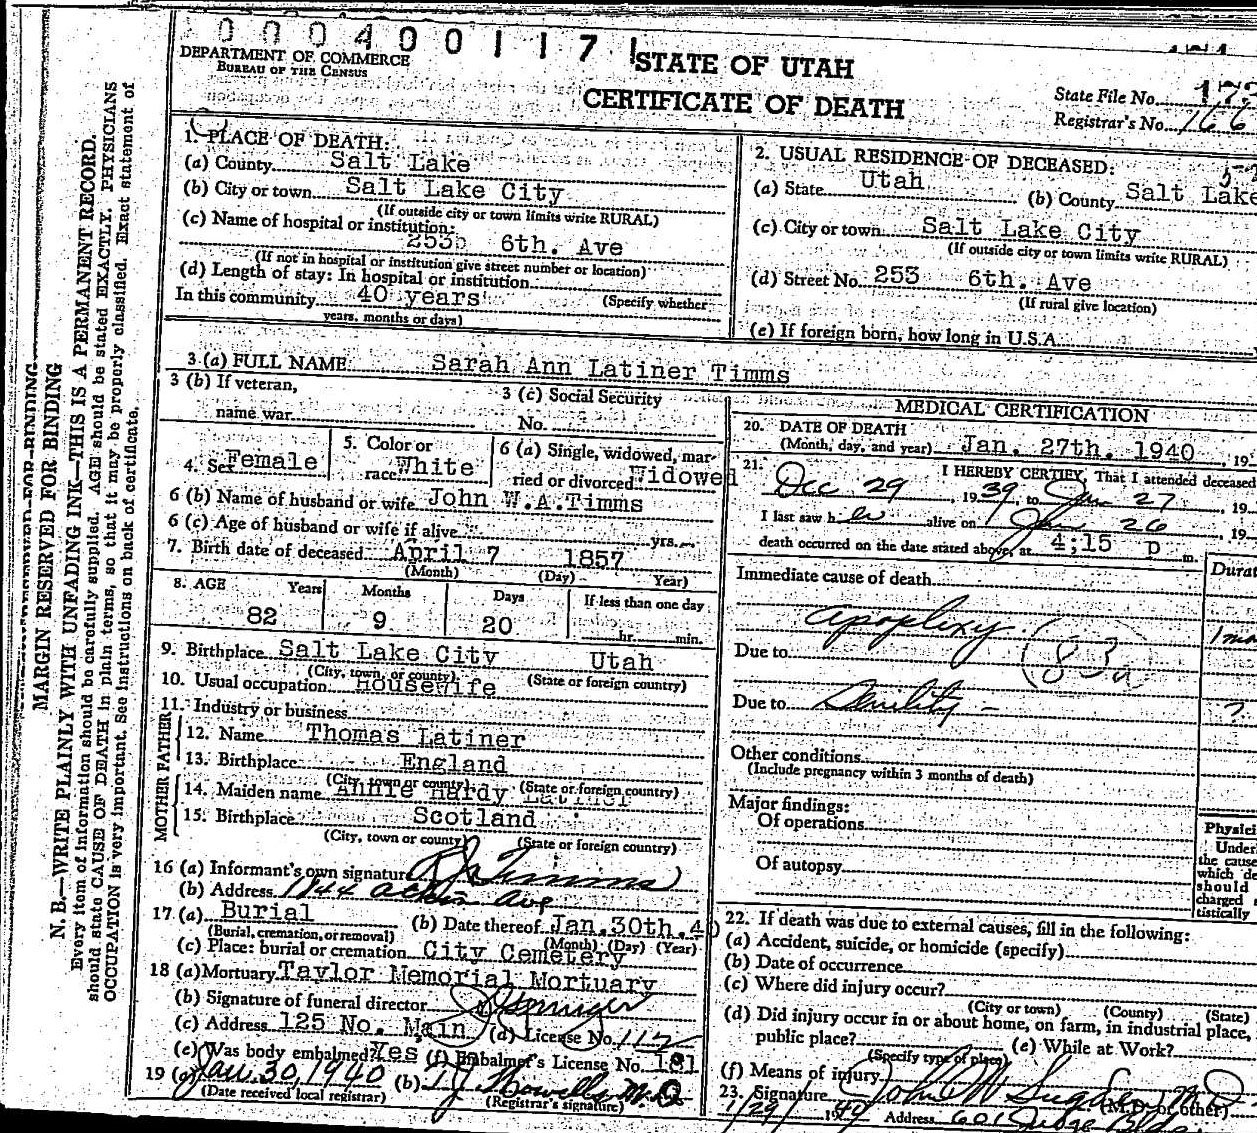 0004001171
DEPARTMENT OF COMMERCE
BUREAU OF THE CENSUS
STATE OF UTAH
CERTIFICATE OF DEATH
State File No.
Registrar's No. 166
MARGIN RESERVED FOR BINDING
N. B.—WRITE PLAINLY WITH UNFADING INK—THIS IS A PERMANENT RECORD.
Every item of information should be carefully supplied. AGE should be stated EXACTLY. PHYSICIANS
should state CAUSE OF DEATH in plain terms, so that it may be properly classified. Exact statement of
OCCUPATION is very important. See instructions on back of certificate.
1. PLACE OF DEATH:
(a) County Salt Lake
(b) City or town Salt Lake City
(If outside city or town limits write RURAL)
(c) Name of hospital or institution:
253 6th. Ave
(If not in hospital or institution give street number or location)
(d) Length of stay: In hospital or institution
In this community 40 years (Specify whether
years, months or days)
2. USUAL RESIDENCE OF DECEASED:
(a) State Utah (b) County Salt Lake
(c) City or town Salt Lake City
(If outside city or town limits write RURAL)
(d) Street No. 253 6th. Ave
(If rural give location)
(e) If foreign born, how long in U.S.A.
3 (a) FULL NAME Sarah Ann Latiner Timms
3 (b) If veteran,
name war
3 (c) Social Security
No.
4. Sex Female
5. Color or
race White
6 (a) Single, widowed, mar-
ried or divorced Widowed
6 (b) Name of husband or wife John W.A.Timms
6 (c) Age of husband or wife if alive yrs.
7. Birth date of deceased April 7 1857
(Month) (Day) Year)
8. AGE Years Months Days If less than one day
82 9 20 hr. min.
9. Birthplace Salt Lake City Utah
(City, town, or county) (State or foreign country)
10. Usual occupation Housewife
11. Industry or business
FATHER
12. Name Thomas Latiner
13. Birthplace England
(City, town or county) (State or foreign country)
MOTHER
14. Maiden name Annie Hardy Latiner
15. Birthplace Scotland
(City, town or county) (State or foreign country)
16 (a) Informant's own signature Timms
(b) Address 1844 Ave
17 (a) Burial (b) Date thereof Jan.30th.40
(Burial, cremation, or removal) (Month) (Day) (Year)
(c) Place: burial or cremation City Cemetery
18 (a) Mortuary Taylor Memorial Mortuary
(b) Signature of funeral director
(c) Address 125 No. Main (d) License No. 112
(e) Was body embalmed? Yes (f) Embalmer's License No. 181
19 (a) Jan. 30, 1940 (b) T. J. Howells M.D.
(Date received local registrar) (Registrar's signature)
MEDICAL CERTIFICATION
20. DATE OF DEATH
(Month, day, and year) Jan. 27th. 1940, 19
21. I HEREBY CERTIFY, That I attended deceased
Dec 29, 1939, to Jan 27, 19
I last saw her alive on Jan 26, 19
death occurred on the date stated above, at 4;15 p m.
Immediate cause of death
Durat
apoplexy
1 mo
Due to
83a
Due to Senility -
?
Other conditions
(Include pregnancy within 3 months of death)
Major findings:
Of operations
Of autopsy
Physici
Under
the cause
which de
should
charged
tistically
22. If death was due to external causes, fill in the following:
(a) Accident, suicide, or homicide (specify)
(b) Date of occurrence
(c) Where did injury occur?
(City or town) (County) (State)
(d) Did injury occur in or about home, on farm, in industrial place,
public place? (e) While at Work?
(Specify type of place)
(f) Means of injury
23. Signature John W Sugden M D
(M.D. or other)
1/29/ 1940 Address 601 Judge Bldg.